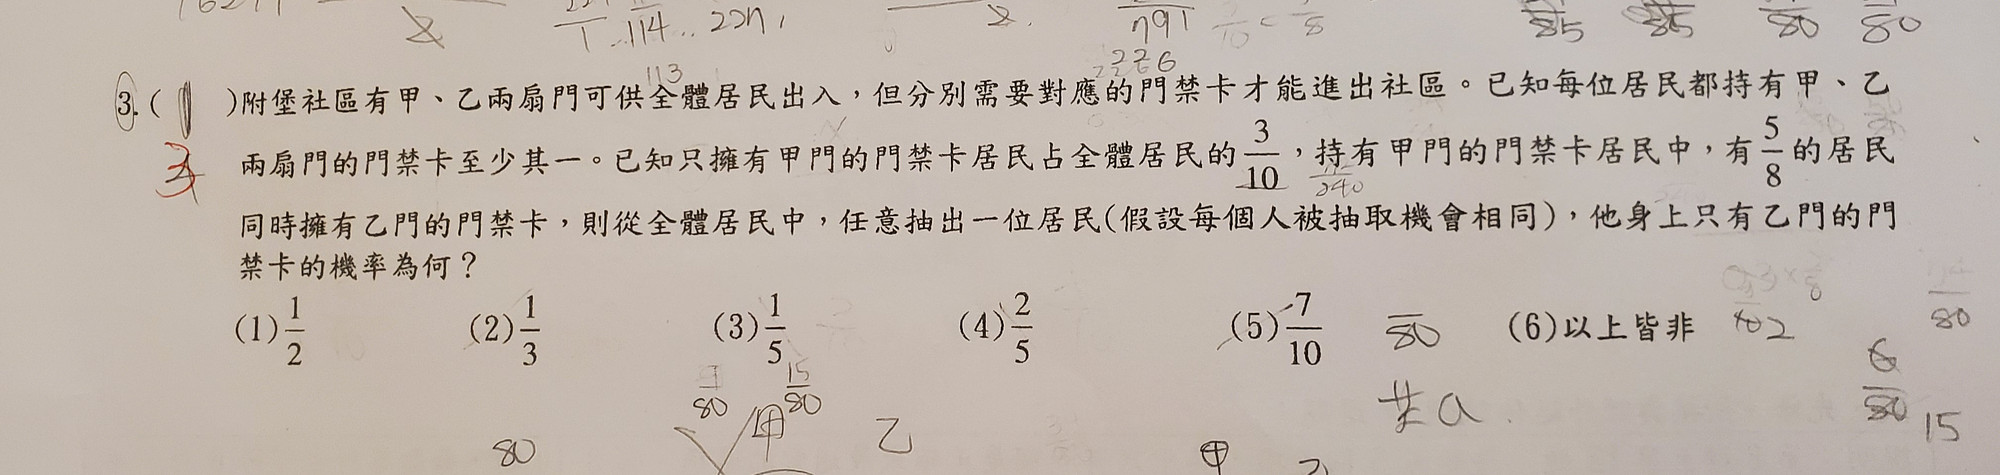 114.. 22n,
n91
3/10 < 3/8
85 85 80 80
113 226
3.( 1 )附堡社區有甲、乙兩扇門可供全體居民出入，但分別需要對應的門禁卡才能進出社區。已知每位居民都持有甲、乙
3 兩扇門的門禁卡至少其一。已知只擁有甲門的門禁卡居民占全體居民的3/10，持有甲門的門禁卡居民中，有5/8的居民
240
同時擁有乙門的門禁卡，則從全體居民中，任意抽出一位居民(假設每個人被抽取機會相同)，他身上只有乙門的門
禁卡的機率為何？
(1)1/2 (2)1/3 (3)1/5 (4)2/5 (5)7/10 80 (6)以上皆非 2 80
80 15/80 共a 6/80 15
80 甲 乙 甲 乙